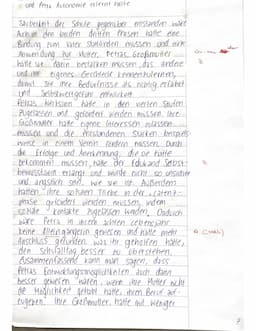 und Petra Autonomie erlernt hätte
der Schule gegenüber entstanden wäre
Auch in den beiden dritten Phasen hätte eine
Bindung zum Vater stattfinden müssen und eine
zur Mutter, Petras Großmutter
hätte ihr darin bestärken müssen, das andere
und ihr eigenes Geschlecht kennenzulernen,
damit sie ihre Bedürfnisse als richtig erfährt
und Selbstwertgefühl entwickelt
Petras hätten in den vierten Stufen
zugelassen und gefördert werden müssen. Ihre
Großmutter hätte eigene Interessen zulassen
müssen und die vorhandenen Stärken beispiels-
weise in einem Verein fördern müssen. Durch
die Erfolge und Anerkennung, die sie hätte
bekommen müssen, hätte der Edukand Selbst-
bewusstsein erlangt und würde nicht so unsicher
und ängstlich sein, wie sie ist. Außerdem
hätten ihre schönen Triebe in der "Latenz-
phase" gefördert werden müssen, indem
soziale Kontakte zugelassen werden. Dadurch
wäre Petra in ihrem siebten Lebensjahr
keine Alleingängerin gewesen und hätte mehr
Anschluss gefunden, was ihr geholfen hätte,
den Schulalltag besser zu überstehen.
Zusammenfassend kann man sagen, dass
Petras Entwicklungsmöglichkeiten auch dann
besser gewesen wären, wenn ihre Mutter nicht
die Möglichkeit gehabt hätte, ihren Beruf auf-
zugeben. Ihre Großmutter hätte mit weniger
7